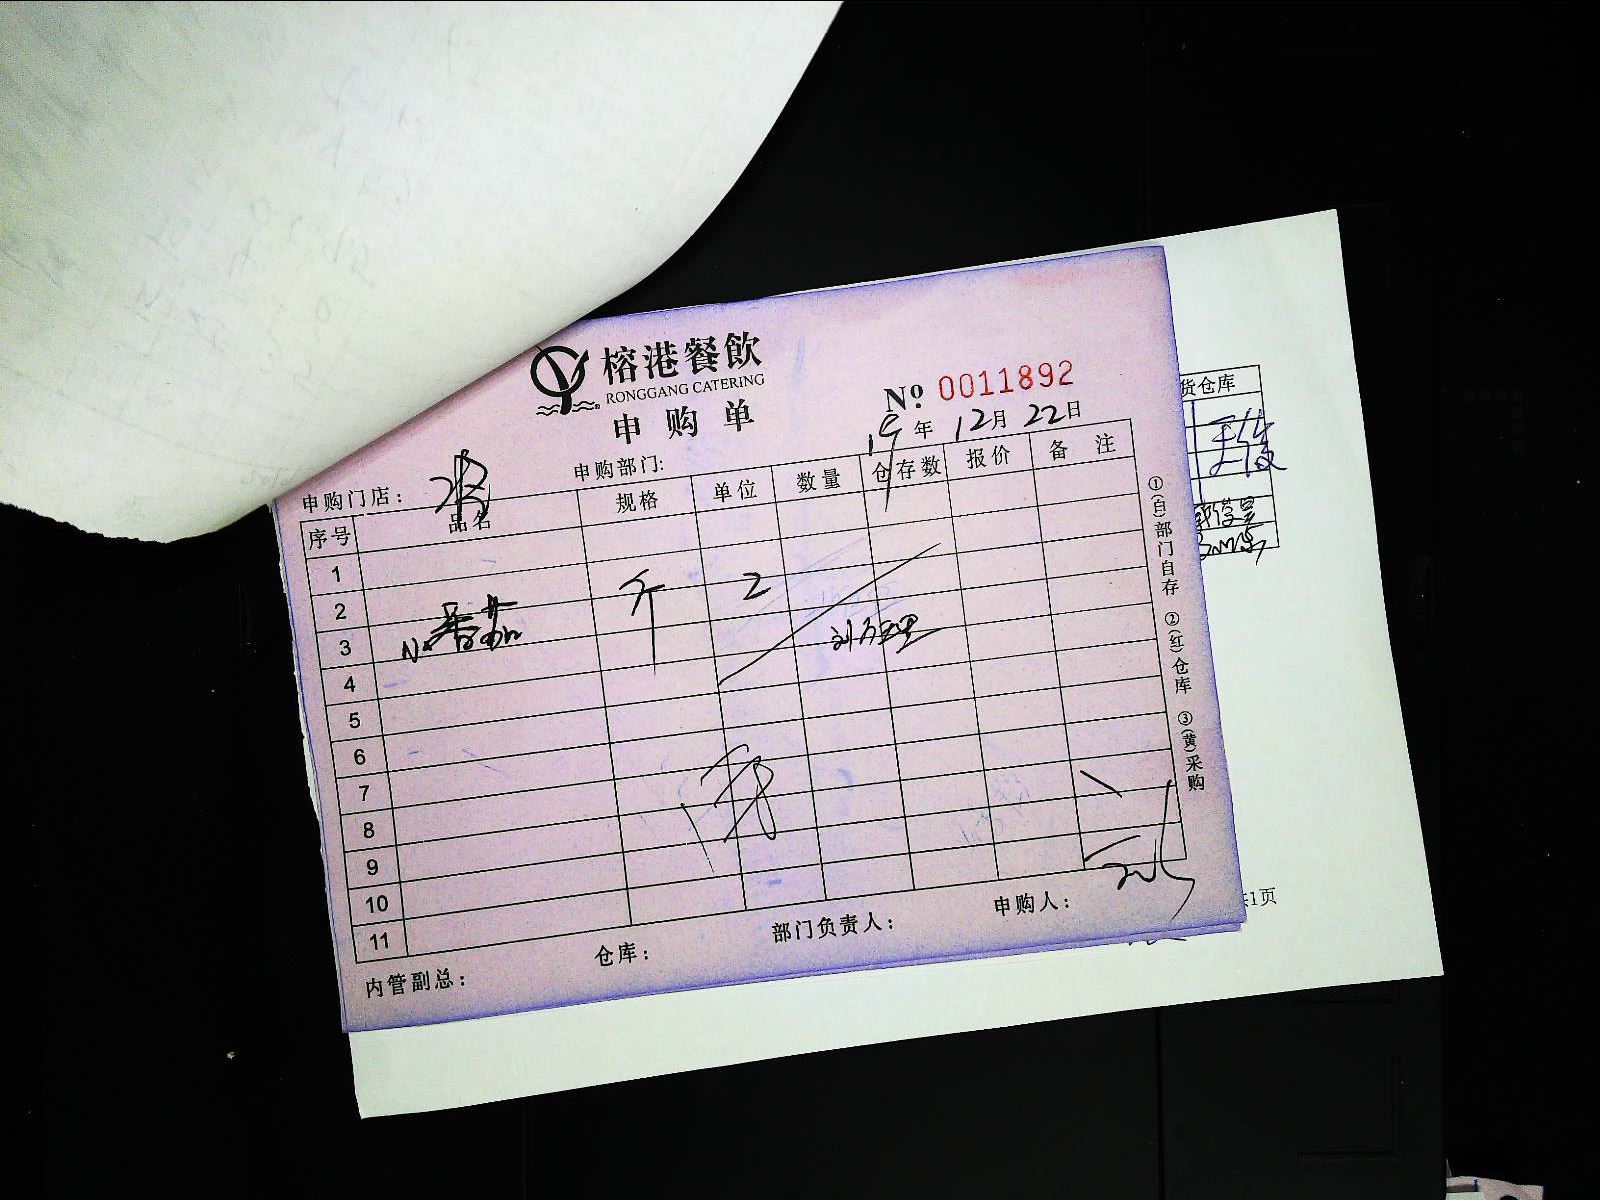 榕港餐飲
RONGGANG CATERING
申购单
№ 0011892
19年 12月 22日
申购门店：
申购部门：
序号 品名 规格 单位 数量 仓存数 报价 备注
1
2 斤 2
3
4
5
6
7
8
9
10
11
内管副总： 仓库： 部门负责人： 申购人：
①(白)部门自存 ②(红)仓库 ③(黄)采购
货仓库
1页